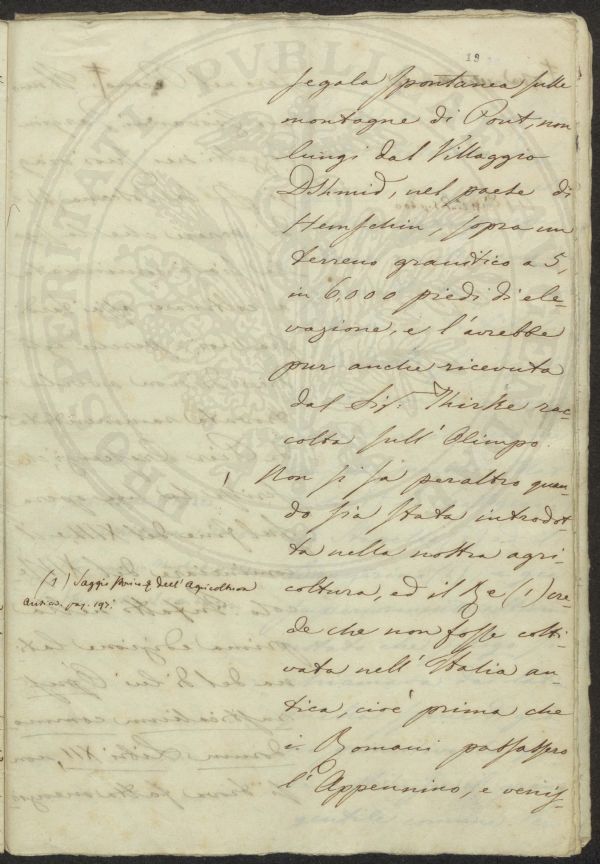 19
segala spontanea sulle
montagne di Pont, non
lungi dal Villaggio
Dshimid, nel paese di
Hemschin, sopra un
terreno granitico a 5,
in 6,000 piedi di ele-
vazione, e l'avrebbe
pur anche ricevuta
dal Sig. Thirke rac-
colta sull'Olimpo.
Non si sa peraltro quan-
do sia stata introdot-
ta nella nostra agri-
coltura, ed il Re (1) cre-
de che non fosse colti-
vata nell'Italia an-
tica, cioè prima che
i Romani passassero
l'Appennino, e veniss-
(1) Saggio dell'Agricoltura
Antica. pag. 197.